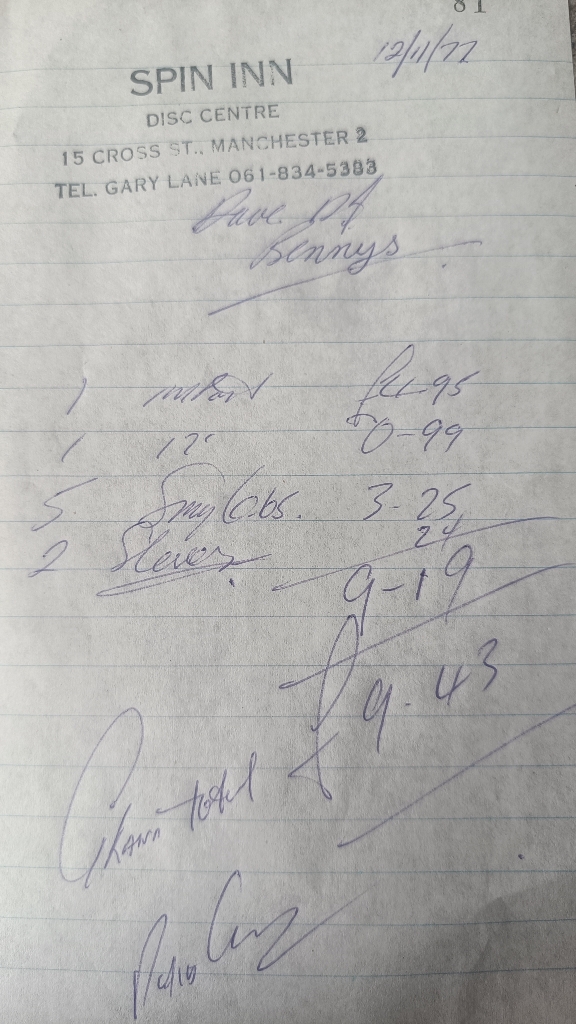 81
12/11/77
SPIN INN
DISC CENTRE
15 CROSS ST., MANCHESTER 2
TEL. GARY LANE 061-834-5383
Dave DJ
Bennys
1 import £4-95
1 12" 0-99
5 3-25
2 Sleeves 24
9-19
£9.43
Grand total